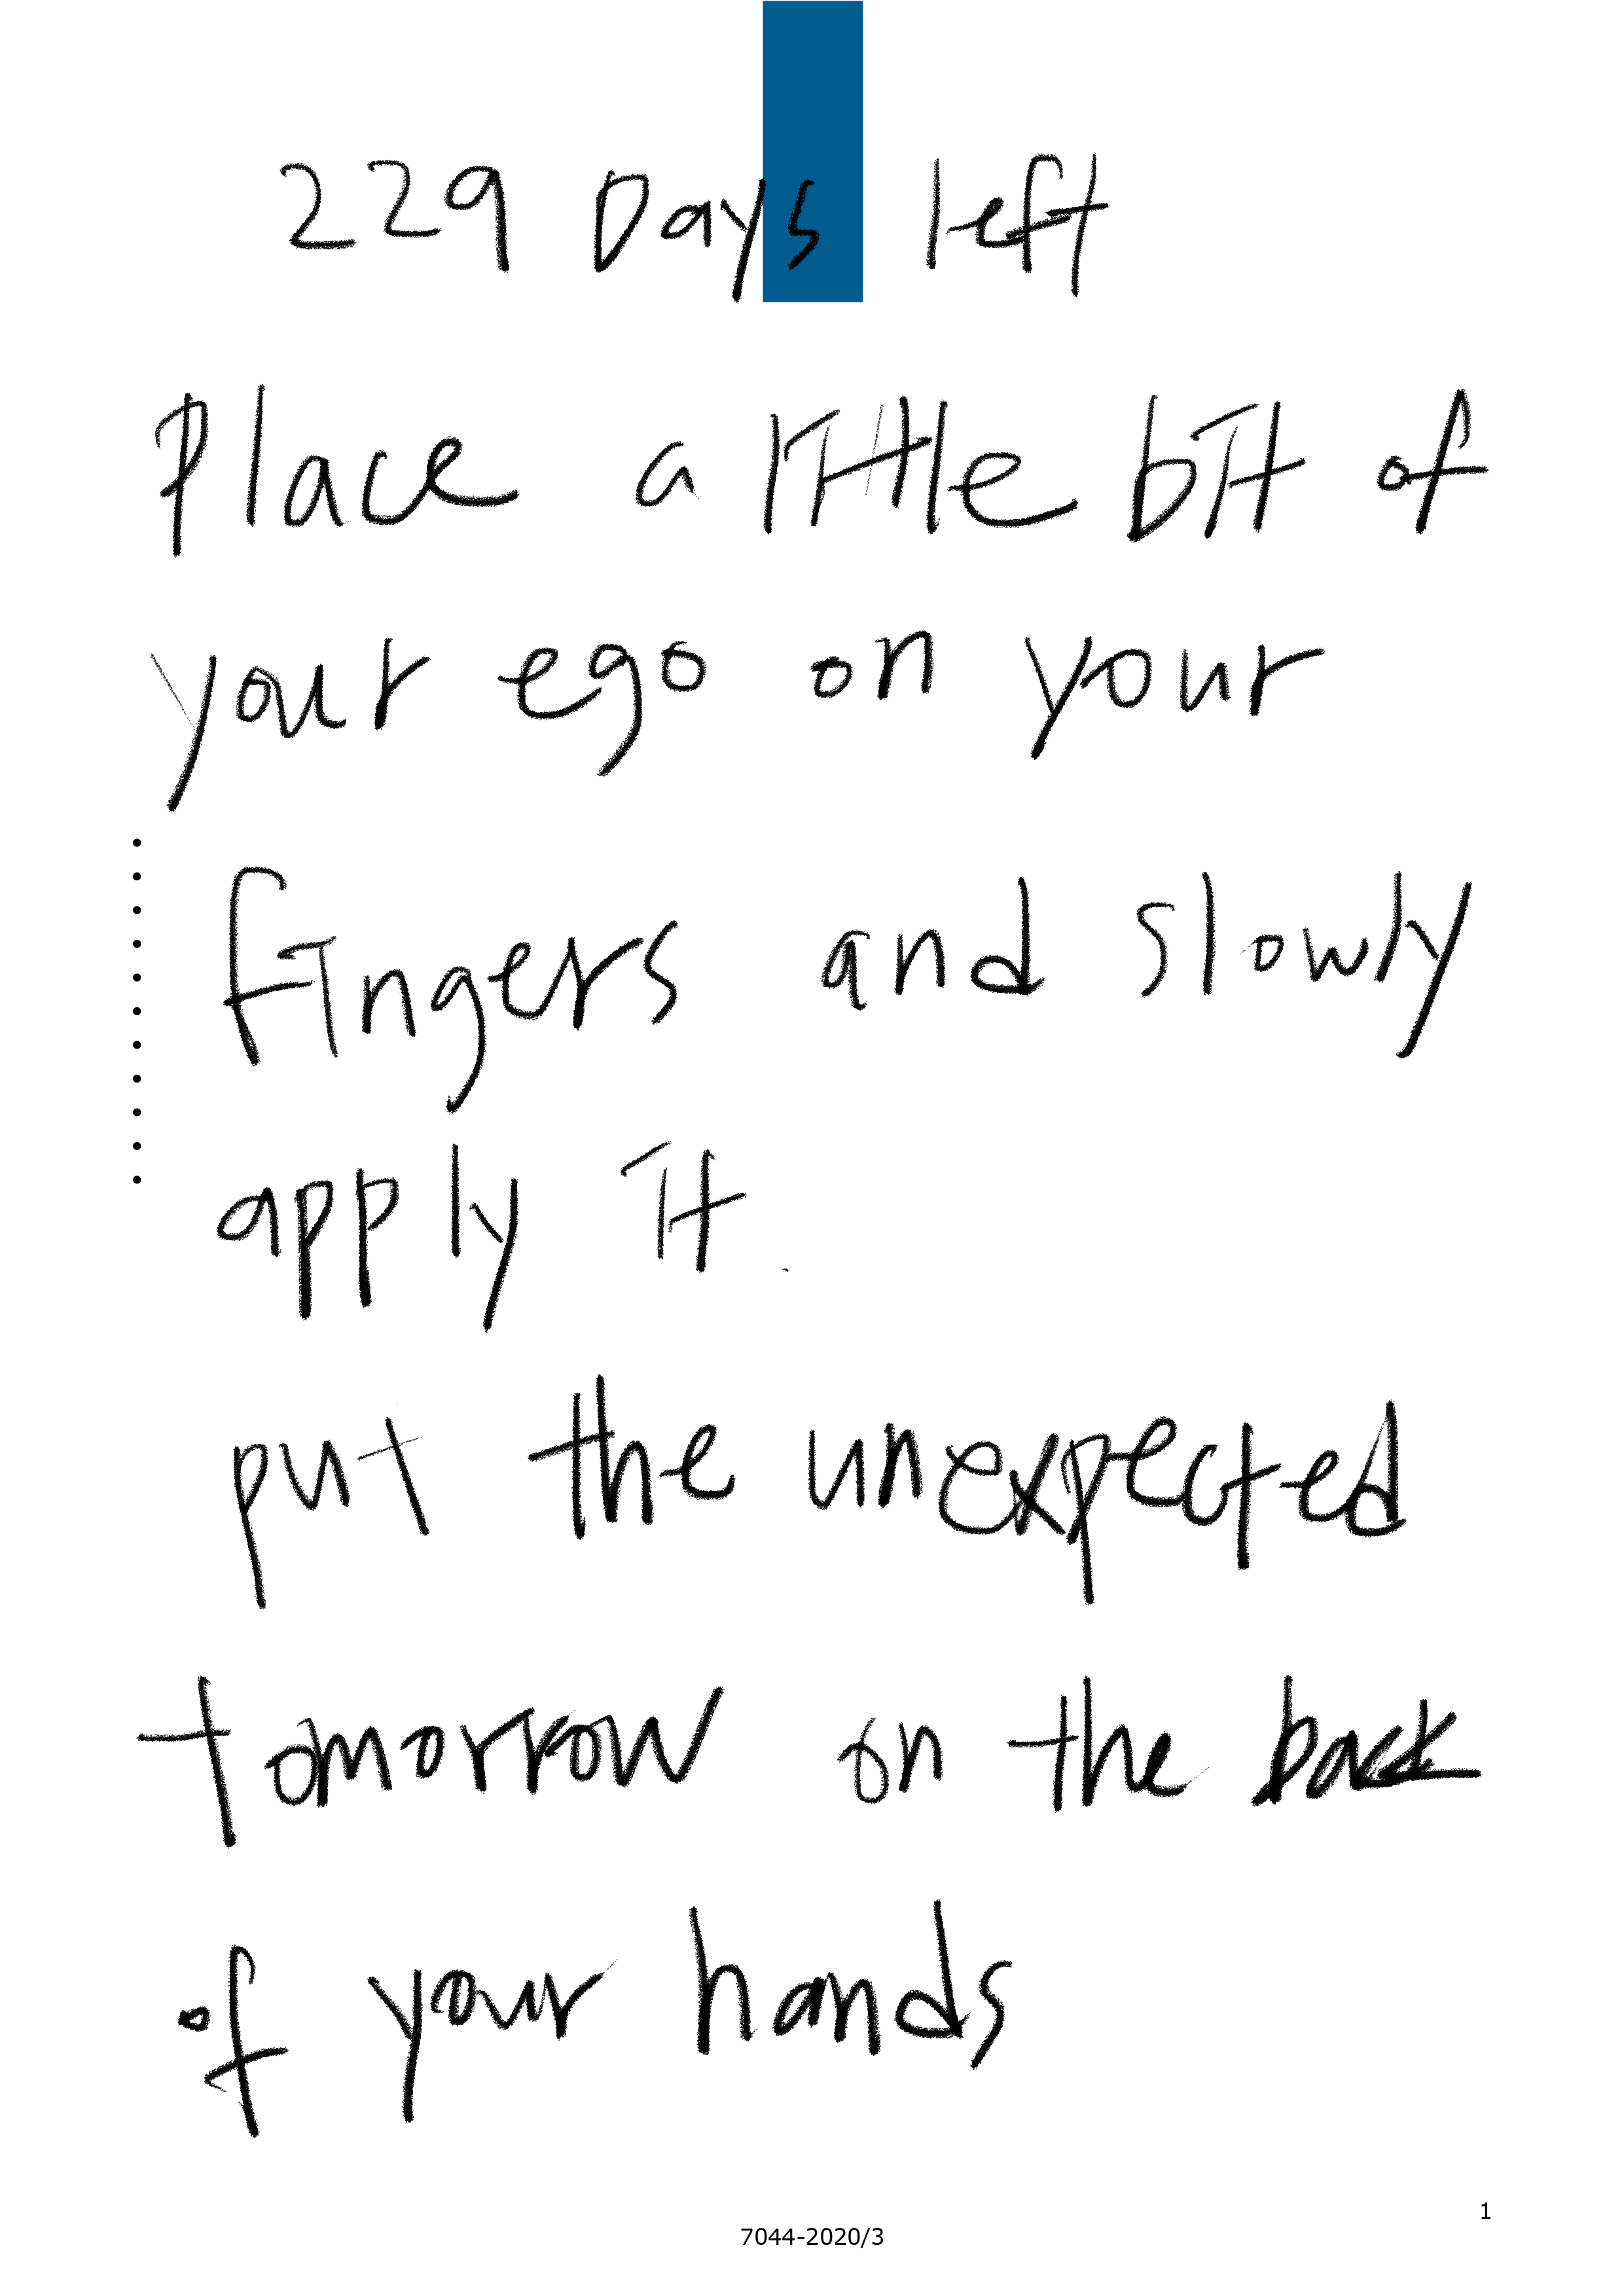 229 Days left
Place a little bit of
your ego on your
fingers and slowly
apply it.
put the unexpected
tomorrow on the back
of your hands
1
7044-2020/3